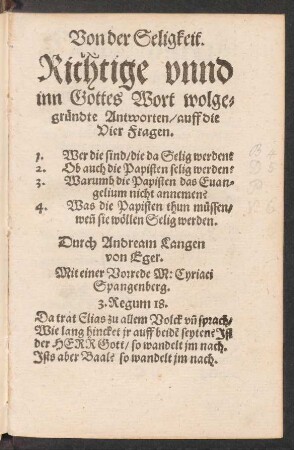 Von der Seligkeit.
Richtige vnnd
inn Gottes Wort wolge-
gründte Antworten/auff die
Vier Fragen.
1. Wer die sind/die da Selig werden?
2. Ob auch die Papisten selig werden?
3. Warumb die Papisten das Euan-
gelium nicht annemen?
4. Was die Papisten thun müssen/
weñ sie wöllen Selig werden.
Durch Andream Langen
von Eger.
Mit einer Vorrede M: Cyriaci
Spangenberg.
3. Regum 18.
Da trat Elias zu allem Volck vñ sprach/
Wie lang hincket jr auff beidẽ seyten? Ist
der HERR Gott/ so wandelt jm nach.
Ists aber Baal? so wandelt jm nach.